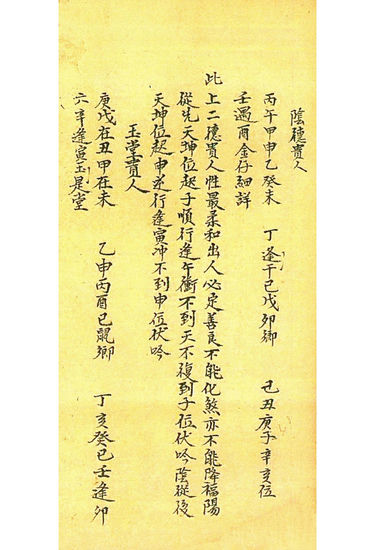 陰德貴人
丙午甲申乙癸未 丁逢干巳戊卯鄉 己丑庚子辛亥位
壬遇酉金仔細詳
此上二德貴人性最柔和出人必定善良不能化煞亦不能降福陽
從先天坤位起子順行逢午衝不到天不復到子位伏吟陰從後
天坤位起申求行逢寅冲不到申位伏吟
玉堂貴人
庚戊在丑甲在未 乙申丙酉己鼠鄉 丁亥癸巳壬逢卯
六辛逢寅玉是堂